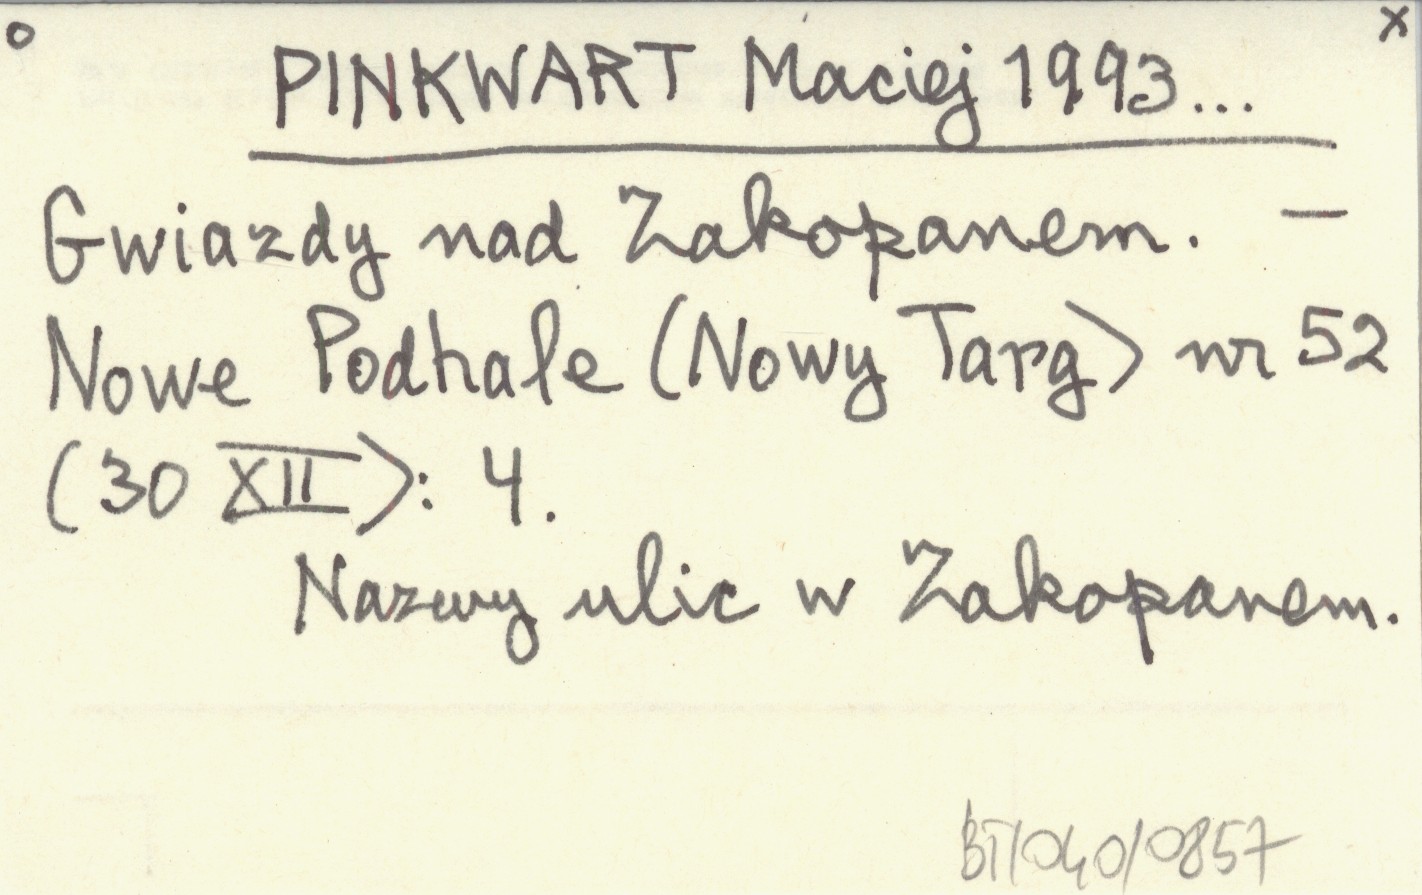 o x
PINKWART Maciej 1993...
Gwiazdy nad Zakopanem. —
Nowe Podhale (Nowy Targ) nr 52
(30 XII): 4.
Nazwy ulic w Zakopanem.
BT/040/0857